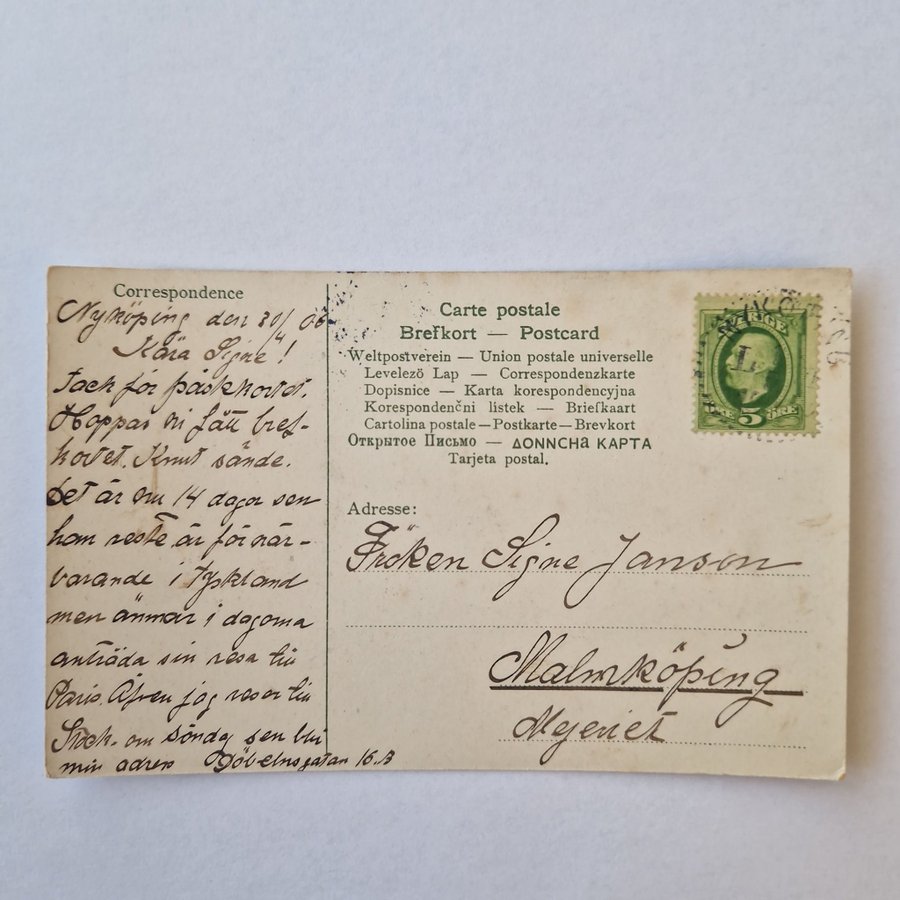 Correspondence
Nyköping den 30/4 06
Kära Signe!
Tack för påskkortet.
Hoppas ni fått bref-
kortet. Knut sände.
Det är nu 14 dagar sen
han reste är förnär-
varande i Tyskland
men ämnar i dagarna
anträda sin resa till
Paris. Äfven jag reser till
Stock. om söndag sen bli
min adress Döbelnsgatan 16.B
Carte postale
Brefkort — Postcard
Weltpostverein — Union postale universelle
Levelező Lap — Correspondenzkarte
Dopisnice — Karta korespondencyjna
Korespondenční listek — Briefkaart
Cartolina postale — Postkarte — Brevkort
Открытое Письмо — ΔΟΝΝCHa ΚΑΡΤΑ
Tarjeta postal.
SVERIGE
5
ÖRE
Adresse:
Fröken Signe Janson
Malmköping
Mejeriet